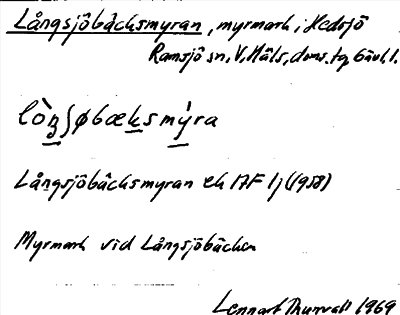 Långsjöbäcksmyran, myrmark, i Hedsjö
Ramsjö sn, V. Häls, doms. tg, Gävl. l.
lòŋʃøbæksmýra
Långsjöbäcksmyran ek 17F 1j (1958)
Myrmark vid Långsjöbäcken
Lennart Thunvall 1969